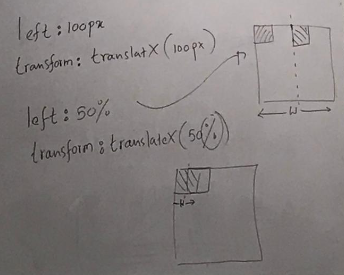 left : 100px
transform: translatX(100px)
left : 50%
transform: translateX(50%)
W
W